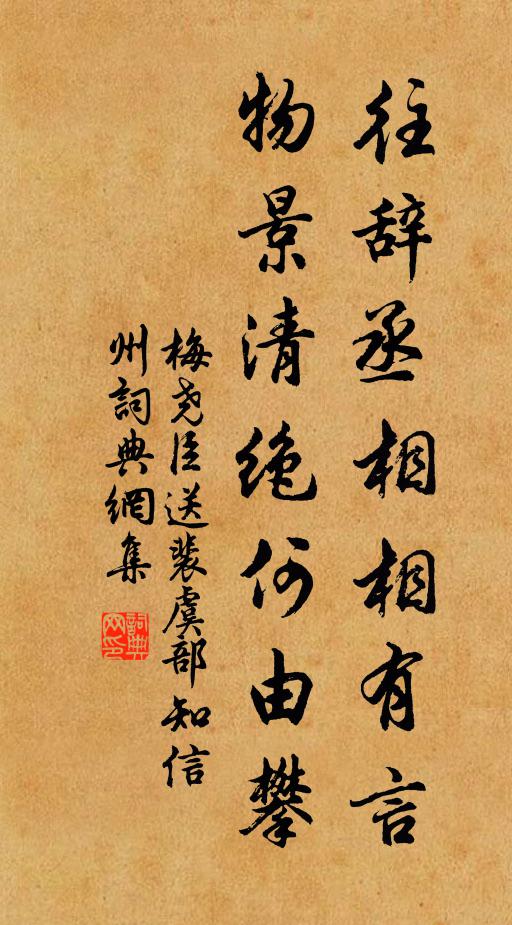 往辞丞相相有言
物景清绝何由攀
梅尧臣送裴虞部知信
州詞典網集
詞典网印